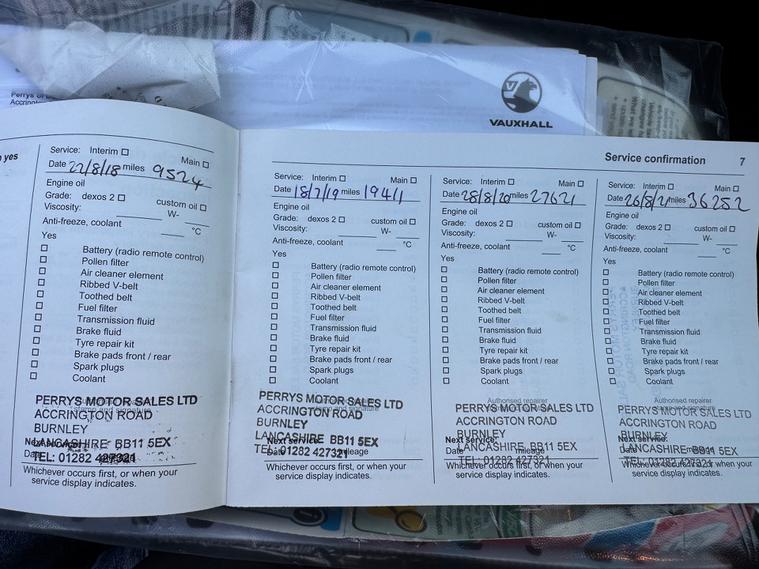 VAUXHALL
Service confirmation 7
yes
Service: Interim ☐ Main ☐
Date 22/8/18 miles 9524
Engine oil
Grade: dexos 2 ☐ custom oil ☐
Viscosity: W-
Anti-freeze, coolant °C
Yes
☐ Battery (radio remote control)
☐ Pollen filter
☐ Air cleaner element
☐ Ribbed V-belt
☐ Toothed belt
☐ Fuel filter
☐ Transmission fluid
☐ Brake fluid
☐ Tyre repair kit
☐ Brake pads front / rear
☐ Spark plugs
☐ Coolant
PERRYS MOTOR SALES LTD
ACCRINGTON ROAD
BURNLEY
LANCASHIRE BB11 5EX
TEL: 01282 427321
Whichever occurs first, or when your
service display indicates.
Service: Interim ☐ Main ☐
Date 18/7/19 miles 19411
Engine oil
Grade: dexos 2 ☐ custom oil ☐
Viscosity: W-
Anti-freeze, coolant °C
Yes
☐ Battery (radio remote control)
☐ Pollen filter
☐ Air cleaner element
☐ Ribbed V-belt
☐ Toothed belt
☐ Fuel filter
☐ Transmission fluid
☐ Brake fluid
☐ Tyre repair kit
☐ Brake pads front / rear
☐ Spark plugs
☐ Coolant
PERRYS MOTOR SALES LTD
ACCRINGTON ROAD
BURNLEY
LANCASHIRE BB11 5EX
TEL: 01282 427321
Next service:
Date mileage
Whichever occurs first, or when your
service display indicates.
Service: Interim ☐ Main ☐
Date 28/8/20 miles 27621
Engine oil
Grade: dexos 2 ☐ custom oil ☐
Viscosity: W-
Anti-freeze, coolant °C
Yes
☐ Battery (radio remote control)
☐ Pollen filter
☐ Air cleaner element
☐ Ribbed V-belt
☐ Toothed belt
☐ Fuel filter
☐ Transmission fluid
☐ Brake fluid
☐ Tyre repair kit
☐ Brake pads front / rear
☐ Spark plugs
☐ Coolant
Authorised repairer
PERRYS MOTOR SALES LTD
ACCRINGTON ROAD
BURNLEY
LANCASHIRE BB11 5EX
TEL: 01282 427321
Next service:
Date mileage
Whichever occurs first, or when your
service display indicates.
Service: Interim ☐ Main ☐
Date 26/8/21 miles 36252
Engine oil
Grade: dexos 2 ☐ custom oil ☐
Viscosity: W-
Anti-freeze, coolant °C
Yes
☐ Battery (radio remote control)
☐ Pollen filter
☐ Air cleaner element
☐ Ribbed V-belt
☐ Toothed belt
☐ Fuel filter
☐ Transmission fluid
☐ Brake fluid
☐ Tyre repair kit
☐ Brake pads front / rear
☐ Spark plugs
☐ Coolant
Authorised repairer
PERRYS MOTOR SALES LTD
ACCRINGTON ROAD
BURNLEY
LANCASHIRE BB11 5EX
TEL: 01282 427321
Next service:
Date mileage
Whichever occurs first, or when your
service display indicates.